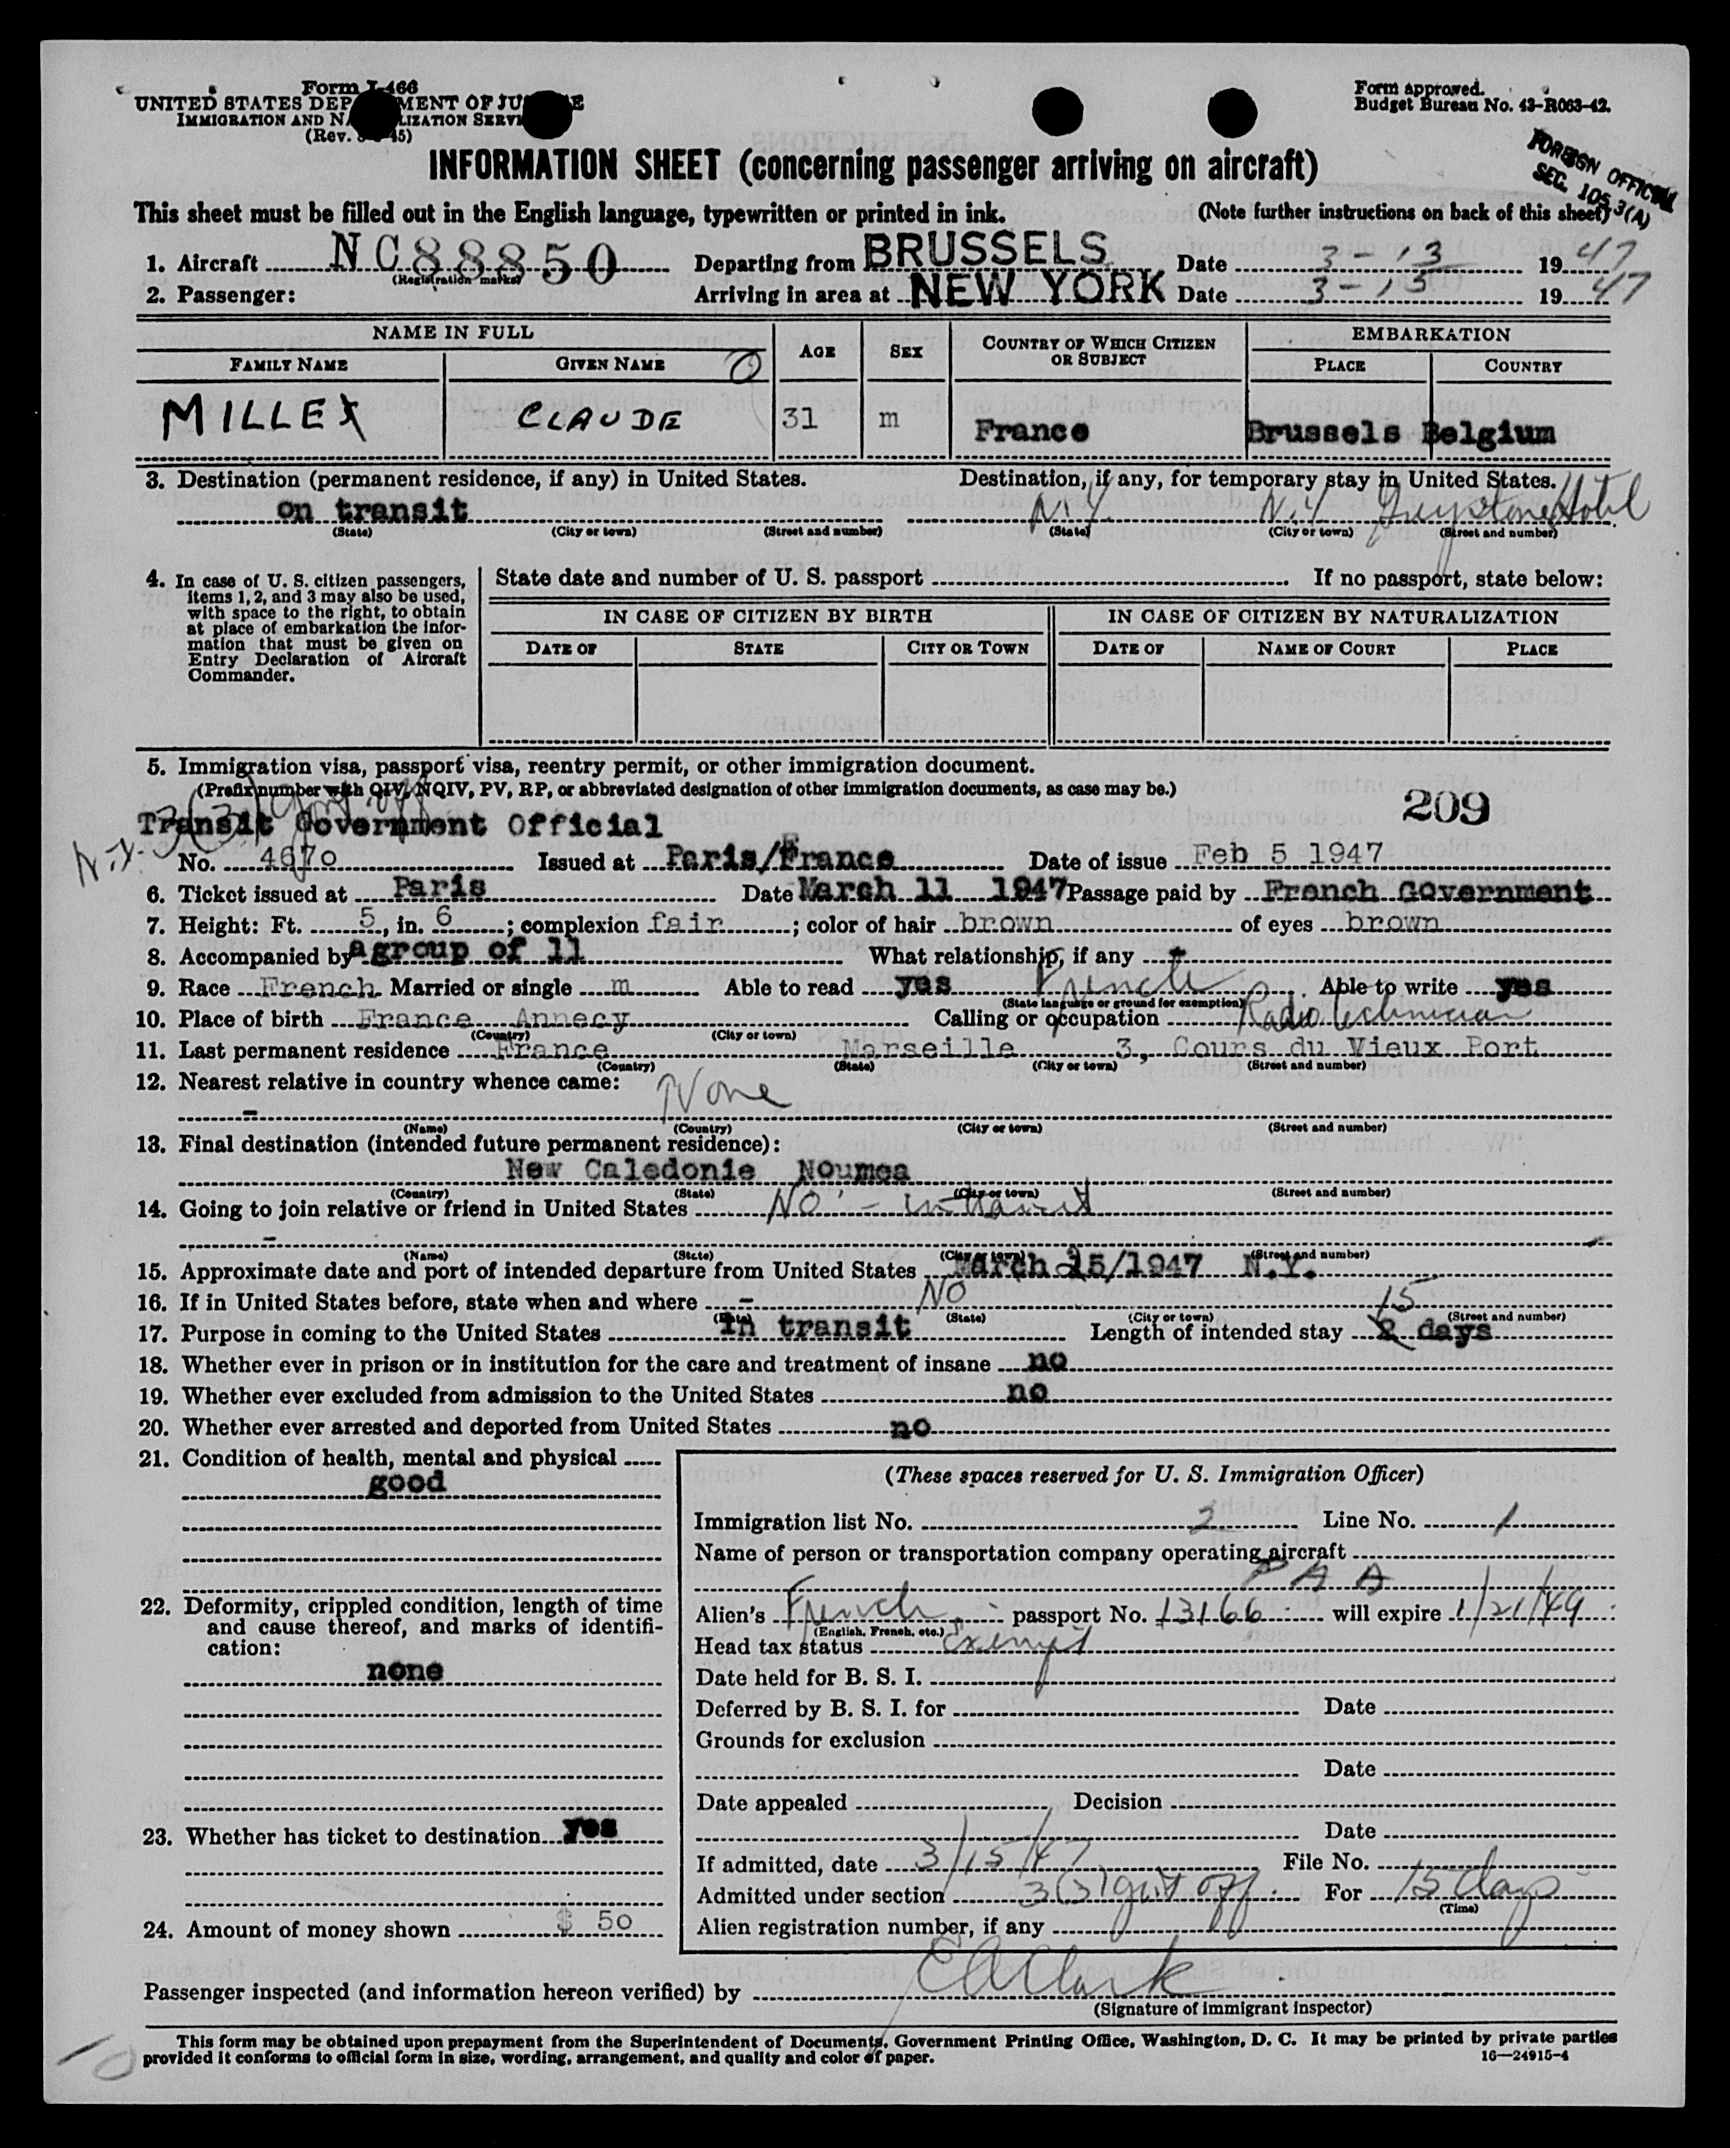 Form I-466
UNITED STATES DEP MENT OF JU E
IMMIGRATION AND NA LIZATION SERVI
(Rev. 45)
Form approved.
Budget Bureau No. 43-R063-42.
FOREIGN OFFICIAL
SEC. 105.3(A)
INFORMATION SHEET (concerning passenger arriving on aircraft)
This sheet must be filled out in the English language, typewritten or printed in ink. (Note further instructions on back of this sheet)
1. Aircraft NC88850 Departing from BRUSSELS Date 3-13 1947
(Registration marks)
2. Passenger: Arriving in area at NEW YORK Date 3-15 1947
NAME IN FULL AGE SEX COUNTRY OF WHICH CITIZEN OR SUBJECT EMBARKATION
FAMILY NAME GIVEN NAME PLACE COUNTRY
MILLEX CLAUDE 31 m France Brussels Belgium
3. Destination (permanent residence, if any) in United States. Destination, if any, for temporary stay in United States.
on transit N.Y. N.Y Greystone Hotel
(State) (City or town) (Street and number) (State) (City or town) (Street and number)
4. In case of U. S. citizen passengers, items 1, 2, and 3 may also be used, with space to the right, to obtain at place of embarkation the information that must be given on Entry Declaration of Aircraft Commander.
State date and number of U. S. passport If no passport, state below:
IN CASE OF CITIZEN BY BIRTH IN CASE OF CITIZEN BY NATURALIZATION
DATE OF STATE CITY OR TOWN DATE OF NAME OF COURT PLACE
5. Immigration visa, passport visa, reentry permit, or other immigration document.
(Prefix number with QIV, NQIV, PV, RP, or abbreviated designation of other immigration documents, as case may be.)
209
Transit Government Official
No. 4670 Issued at Paris/France Date of issue Feb 5 1947
6. Ticket issued at Paris Date March 11 1947 Passage paid by French Government
7. Height: Ft. 5, in. 6; complexion fair; color of hair brown of eyes brown
8. Accompanied by a group of 11 What relationship, if any
9. Race French Married or single m Able to read yes French Able to write yes
(State language or ground for exemption)
10. Place of birth France Annecy Calling or occupation Radio technician
(Country) (City or town)
11. Last permanent residence France Marseille 3, Cours du Vieux Port
(Country) (State) (City or town) (Street and number)
12. Nearest relative in country whence came: None
-
(Name) (Country) (City or town) (Street and number)
13. Final destination (intended future permanent residence):
New Caledonie Noumea
(Country) (State) (City or town) (Street and number)
14. Going to join relative or friend in United States NO - in transit
-
(Name) (State) (City or town) (Street and number)
15. Approximate date and port of intended departure from United States March 15/1947 N.Y.
16. If in United States before, state when and where - NO
(Date) (State) (City or town) (Street and number)
17. Purpose in coming to the United States In transit Length of intended stay 15 days
18. Whether ever in prison or in institution for the care and treatment of insane no
19. Whether ever excluded from admission to the United States no
20. Whether ever arrested and deported from United States no
21. Condition of health, mental and physical
good
22. Deformity, crippled condition, length of time and cause thereof, and marks of identification:
none
23. Whether has ticket to destination yes
24. Amount of money shown $ 50
(These spaces reserved for U. S. Immigration Officer)
Immigration list No. 2 Line No. 1
Name of person or transportation company operating aircraft
P A A
Alien's French passport No. 13166 will expire 1/21/49
(English, French, etc.)
Head tax status Exempt
Date held for B. S. I.
Deferred by B. S. I. for Date
Grounds for exclusion
Date
Date appealed Decision
Date
If admitted, date 3/15/47 File No.
Admitted under section 3(3) gvt off. For 15 days
(Time)
Alien registration number, if any
Passenger inspected (and information hereon verified) by E A Clark
(Signature of immigrant inspector)
This form may be obtained upon prepayment from the Superintendent of Documents, Government Printing Office, Washington, D. C. It may be printed by private parties
provided it conforms to official form in size, wording, arrangement, and quality and color of paper. 16—24915-4